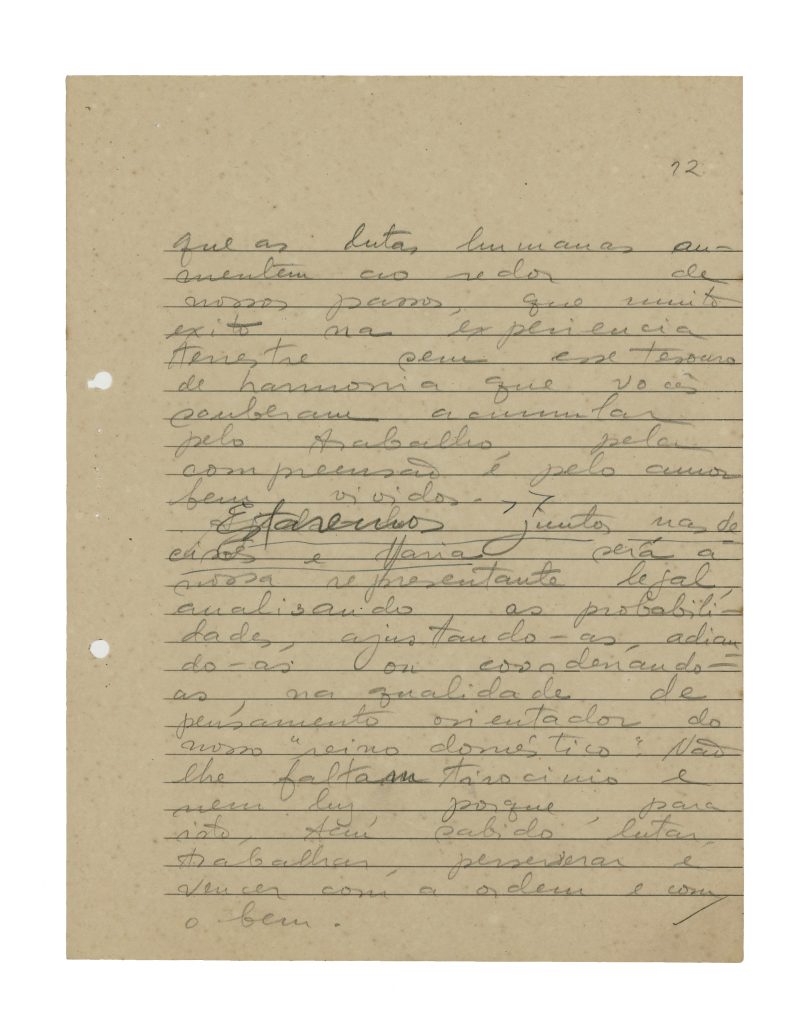 12
que as lutas humanas au-
mentem ao redor de
nossos passos, que muito
exito na experiencia
terrestre sem esse tesouro
de harmonia que vocês
souberam acumular
pelo trabalho, pela
compreensão e pelo amor
bem vividos.
Estaremos juntos nas de-
cisões e Maria será a
nossa representante legal,
analisando as probabili-
dades, ajustando-as, adian-
do-as ou coordenando-
as, na qualidade de
pensamento orientador do
nosso "reino doméstico". Não
lhe faltam tirocinio e
nem luz porque, para
isto, tem sabido lutar,
trabalhar, perseverar e
vencer com a ordem e com
o bem.